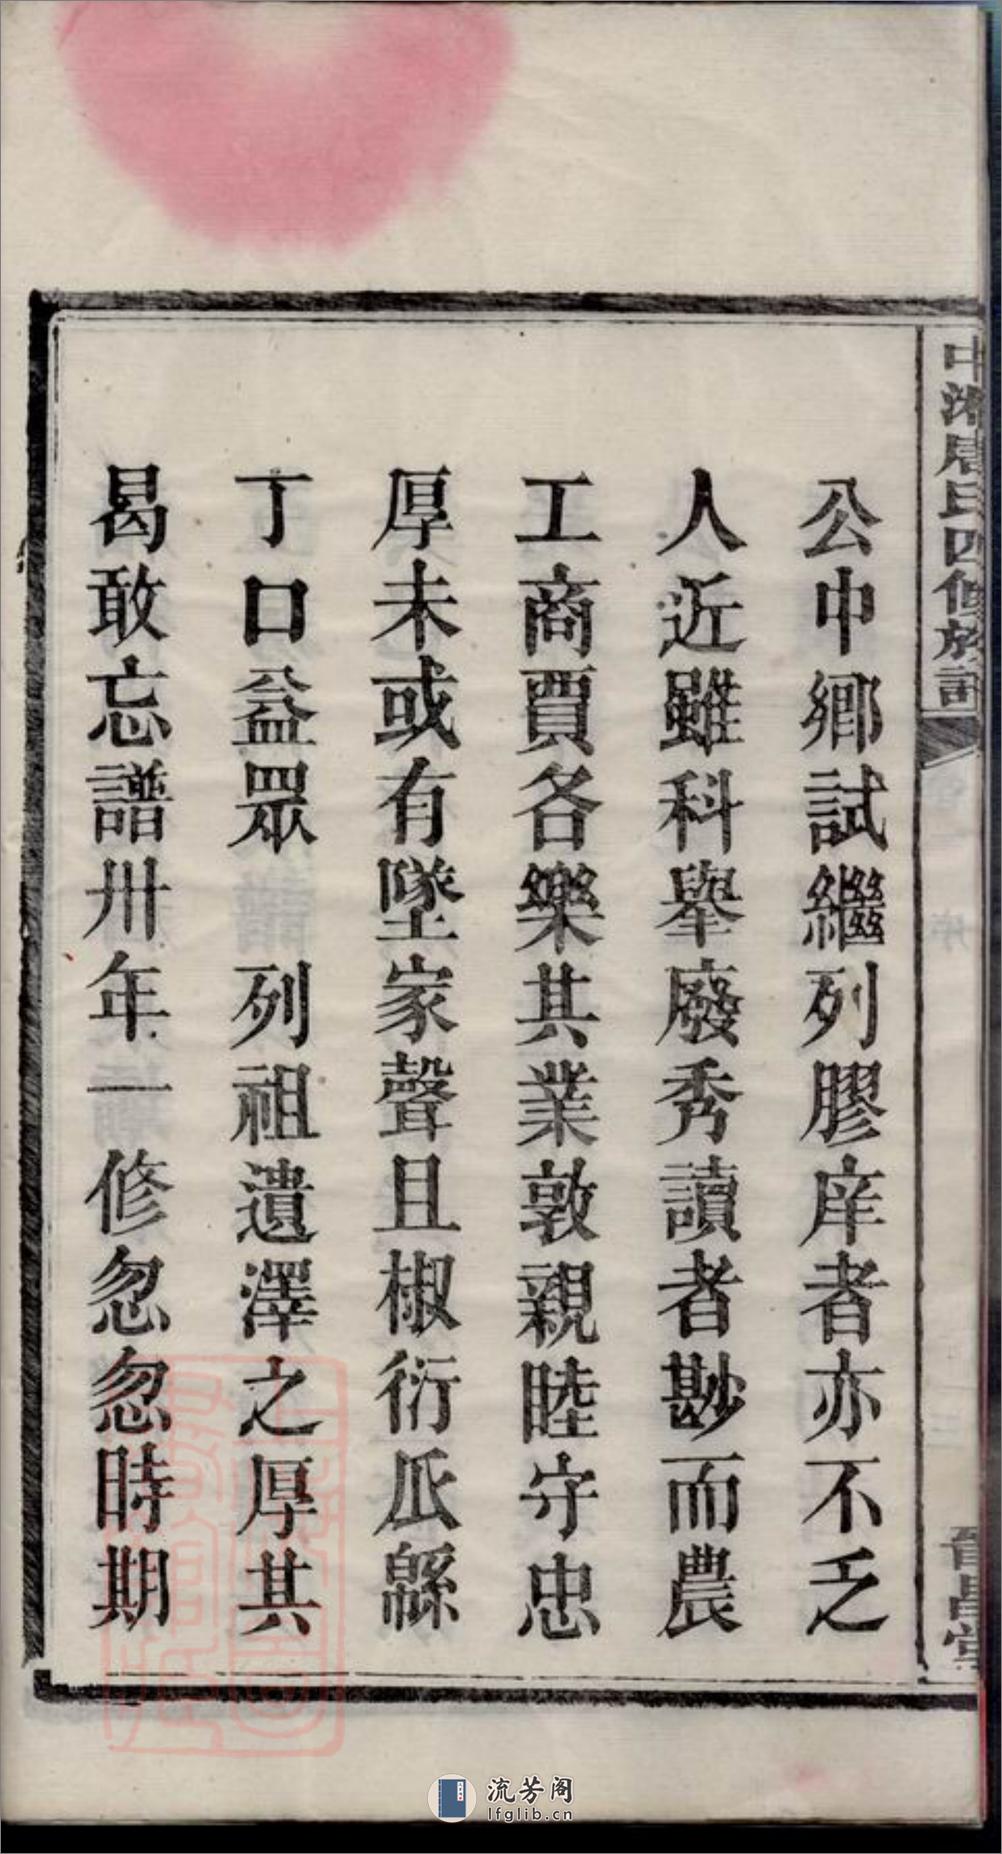 中湘唐氏四修族譜
序
晉昌堂
公中鄉試繼列膠庠者亦不乏
人近雖科舉廢秀讀者尠而農
工商賈各樂其業敦親睦守忠
厚未或有墜家聲且椒衍瓜緜
丁口益眾　列祖遺澤之厚其
曷敢忘譜卅年一修忽忽時期
流芳阁
lfglib.cn